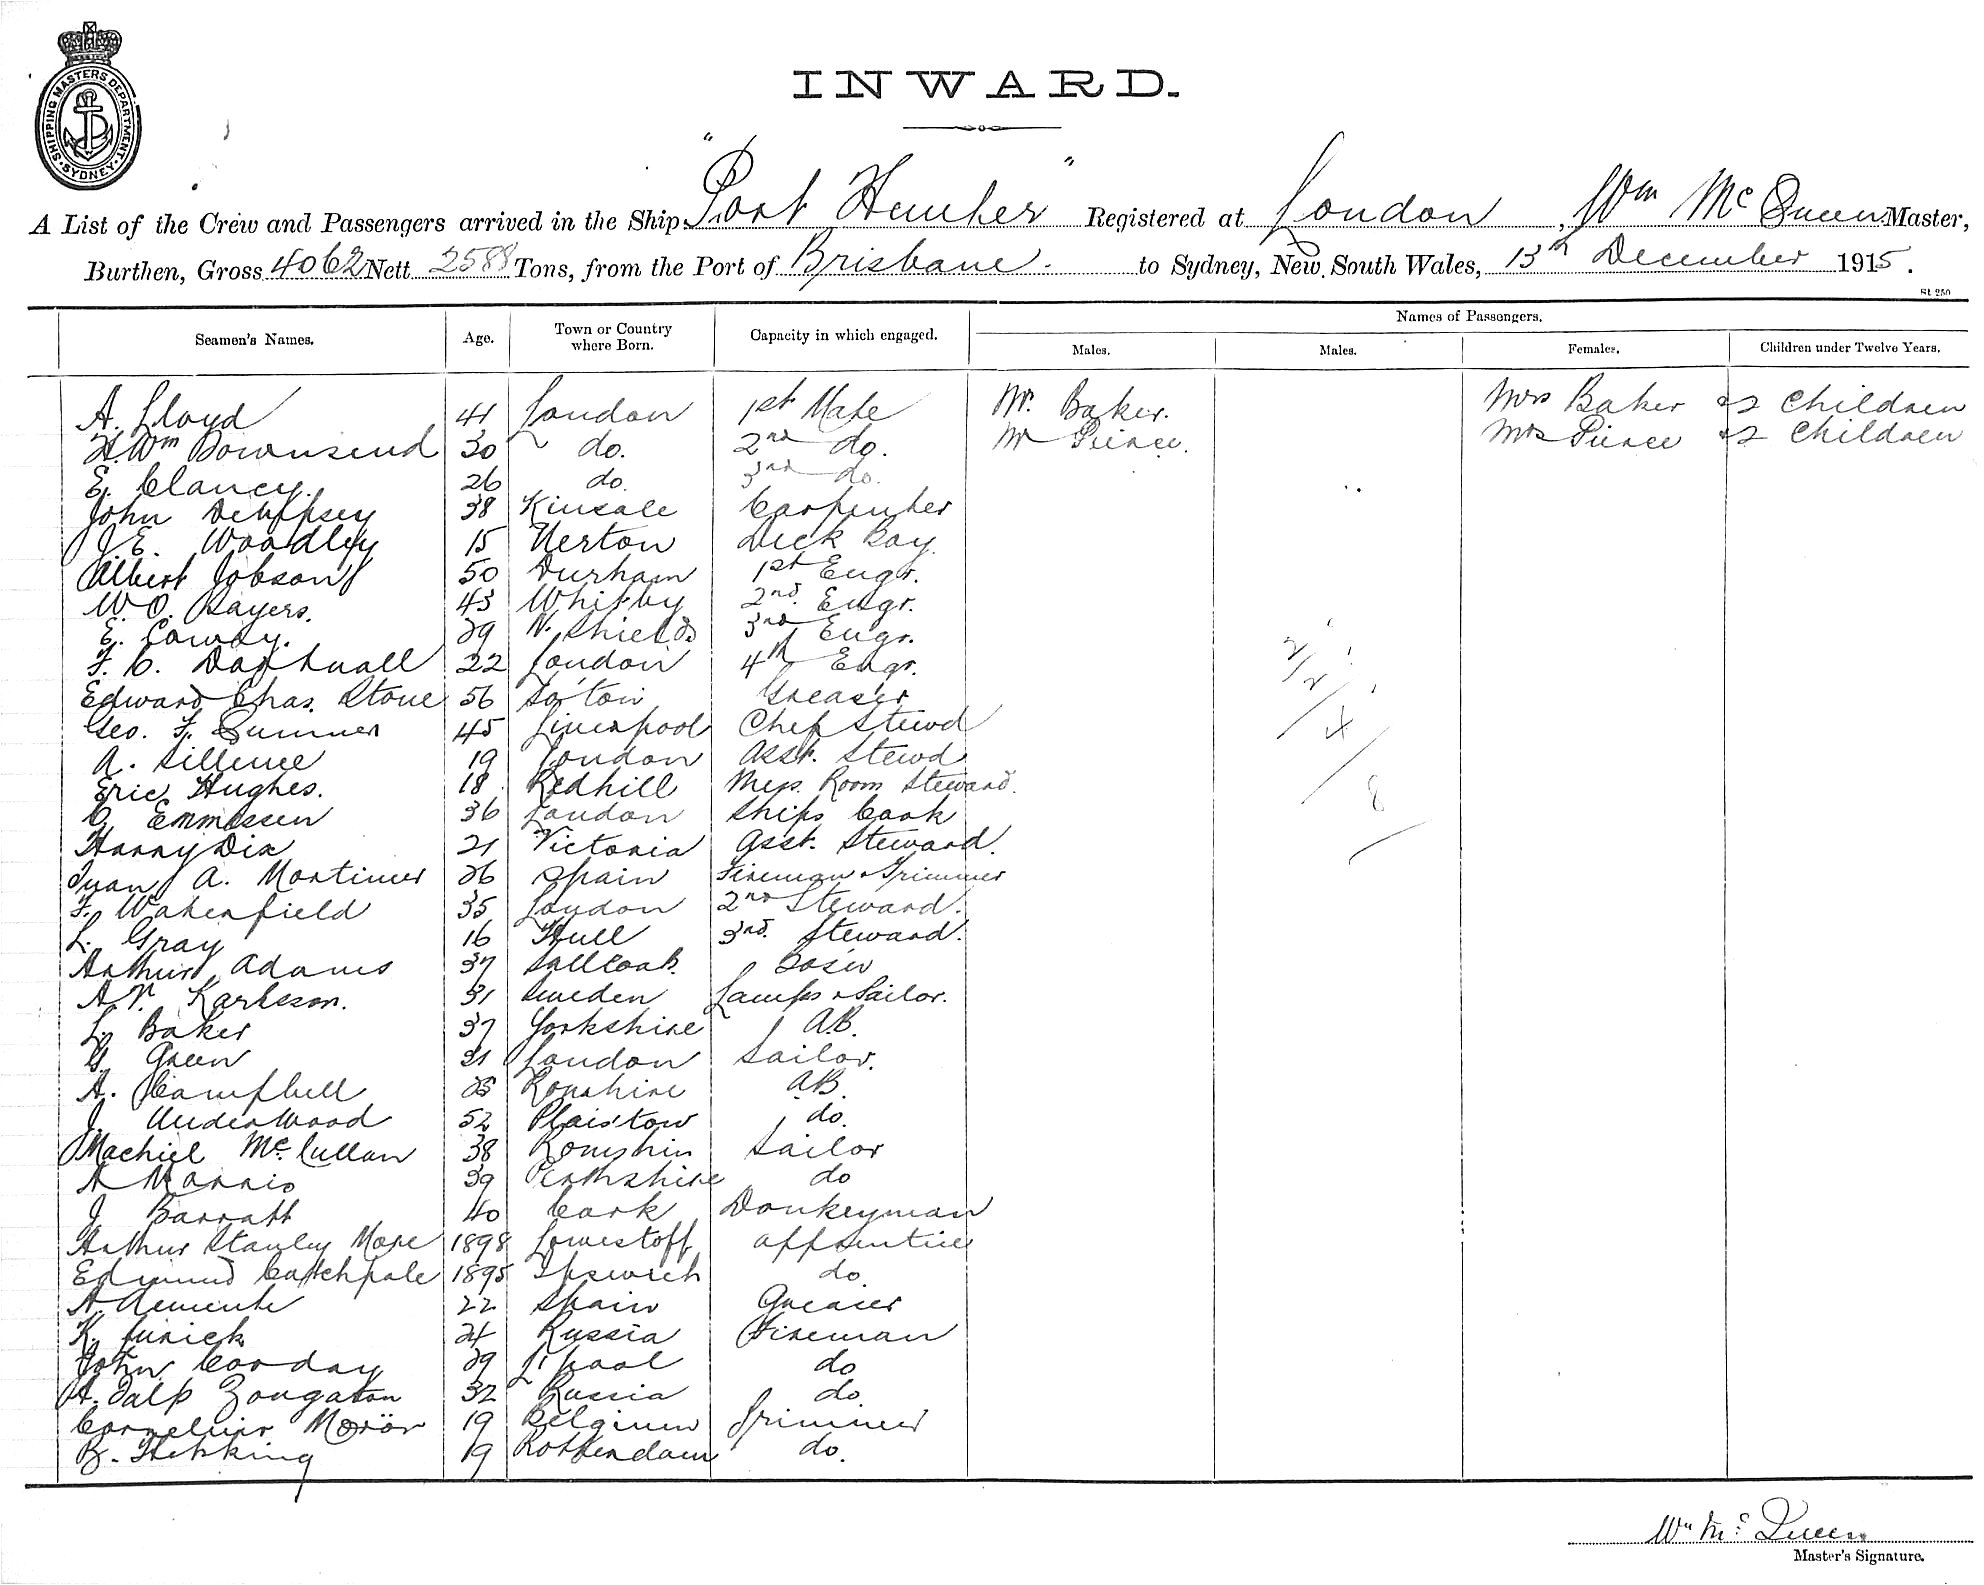 SHIPPING MASTERS DEPARTMENT · SYDNEY ·
INWARD.
A List of the Crew and Passengers arrived in the Ship "Port Hunter" Registered at London, Wm McQueen Master,
Burthen, Gross 4062 Nett 2588 Tons, from the Port of Brisbane. to Sydney, New South Wales, 13th December 1915.
St 250
Seamen's Names. Age. Town or Country where Born. Capacity in which engaged. Names of Passengers.
Males. Males. Females. Children under Twelve Years.
A. Lloyd 41 London 1st Mate Mr. Baker. Mrs Baker & 2 Children
H. Wm Downsend 30 do. 2nd do. Mr Pierce. Mrs Pierce & 2 Children
E. Clancy. 26 do. 3rd do.
John Dempsey 38 Kinsale Carpenter
J. E. Woodley 15 Deck Boy
Albert Jobson 50 Durham 1st Engr.
W. O. Sayers. 43 Whitby 2nd Engr.
E. Conway. 29 N. Shields 3rd Engr.
22 London 4th Engr.
2/2
Edward Chas. Stone 56 So'ton Greaser
Geo. F. Sumner 45 Liverpool Chef Stewd
/4
A. Sillence 19 London Asst. Stewd
Eric Hughes. 18 Redhill Mess Room Steward.
/8
C. 36 London Ships Cook
Harry Dix 21 Victoria Asst. Steward.
Juan A. Mortimer 26 Spain Fireman & Trimmer
F. Wakenfield 35 London 2nd Steward.
L. Gray 16 Hull 3rd Steward.
Arthur Adams 37 Bos'n
A. V. Karlsson. 31 Sweden Lamps & Sailor.
L. Baker 37 Yorkshire A.B.
G. Green 31 London Sailor.
A. Campbell Rosshire A.B.
J. Underwood 52 Plaistow do.
Machiel McCullan 38 Sailor
A Morris 39 Perthshire do
J Barratt 40 Cork Donkeyman
Arthur Stanley More 1898 Lowestoff Apprentice
Edmund Catchpole 1895 Ipswich do.
A. Clemente 22 Spain Greaser
K. 24 Russia Fireman
John Corday 29 L'pool do
A. Talp Zougaton 32 Russia do.
Cornelius 19 Belgium Trimmer
B. Hekking 19 Rotterdam do.
Wm McQueen
Master's Signature.